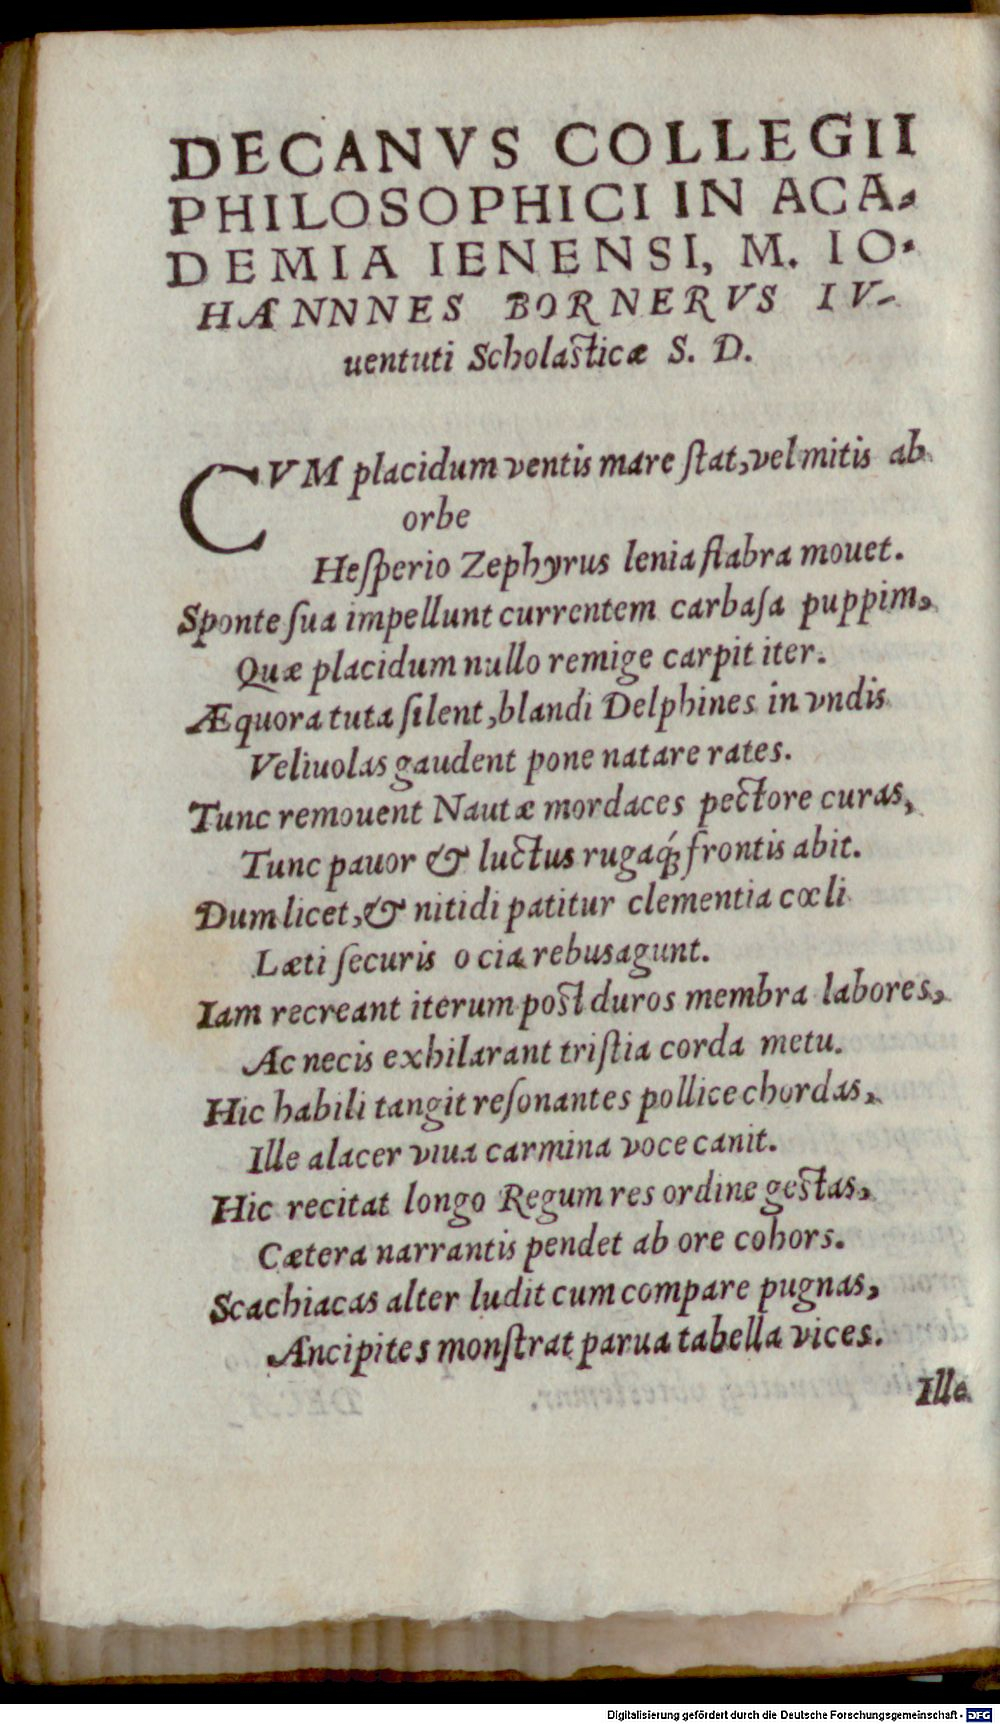 DECANVS COLLEGII
PHILOSOPHICI IN ACA-
DEMIA IENENSI, M. IO-
HANNNES BORNERVS IV-
uentuti Scholasticæ S. D.
CVM placidum ventis mare ſtat, vel mitis ab
orbe
Heſperio Zephyrus lenia flabra mouet.
Sponte ſua impellunt currentem carbaſa puppim,
Quæ placidum nullo remige carpit iter.
Æquora tuta ſilent, blandi Delphines in vndis
Veliuolas gaudent pone natare rates.
Tunc remouent Nautæ mordaces pectore curas,
Tunc pauor & luctus rugaq́; frontis abit.
Dum licet, & nitidi patitur clementia cœli
Læti ſecuris ocia rebus agunt.
Iam recreant iterum post duros membra labores,
Ac necis exhilarant triſtia corda metu.
Hic habili tangit reſonantes pollice chordas,
Ille alacer viua carmina voce canit.
Hic recitat longo Regum res ordine gestas,
Cætera narrantis pendet ab ore cohors.
Scachiacas alter ludit cum compare pugnas,
Ancipites monſtrat parua tabella vices.
Ille
Digitalisierung gefördert durch die Deutsche Forschungsgemeinschaft - DFG